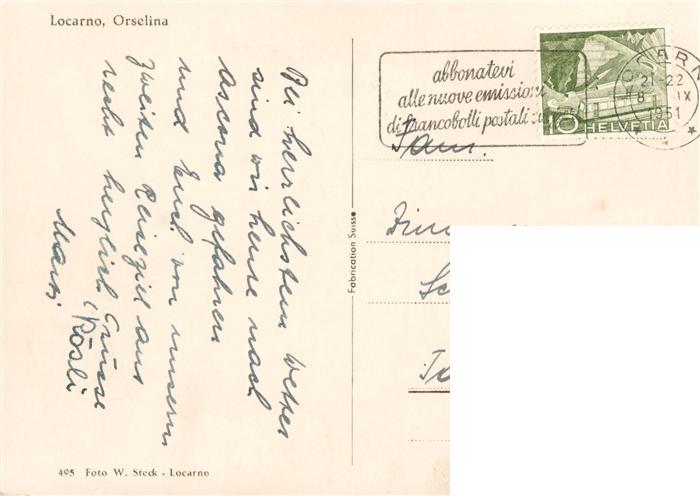 Locarno, Orselina
Bei herrlichstem Wetter
sind wir heute nach
Ascona gefahren
und Euch von unserm
zweiten Reiseziel aus
recht herzlich Grüsse
Rösli
495 Foto W. Steck - Locarno
Fabrication Suisse
abbonatevi
alle nuove emissioni
di francobolli postali
LOCARN
21-22
8 IX
1951
10 HELVETIA
Fam.